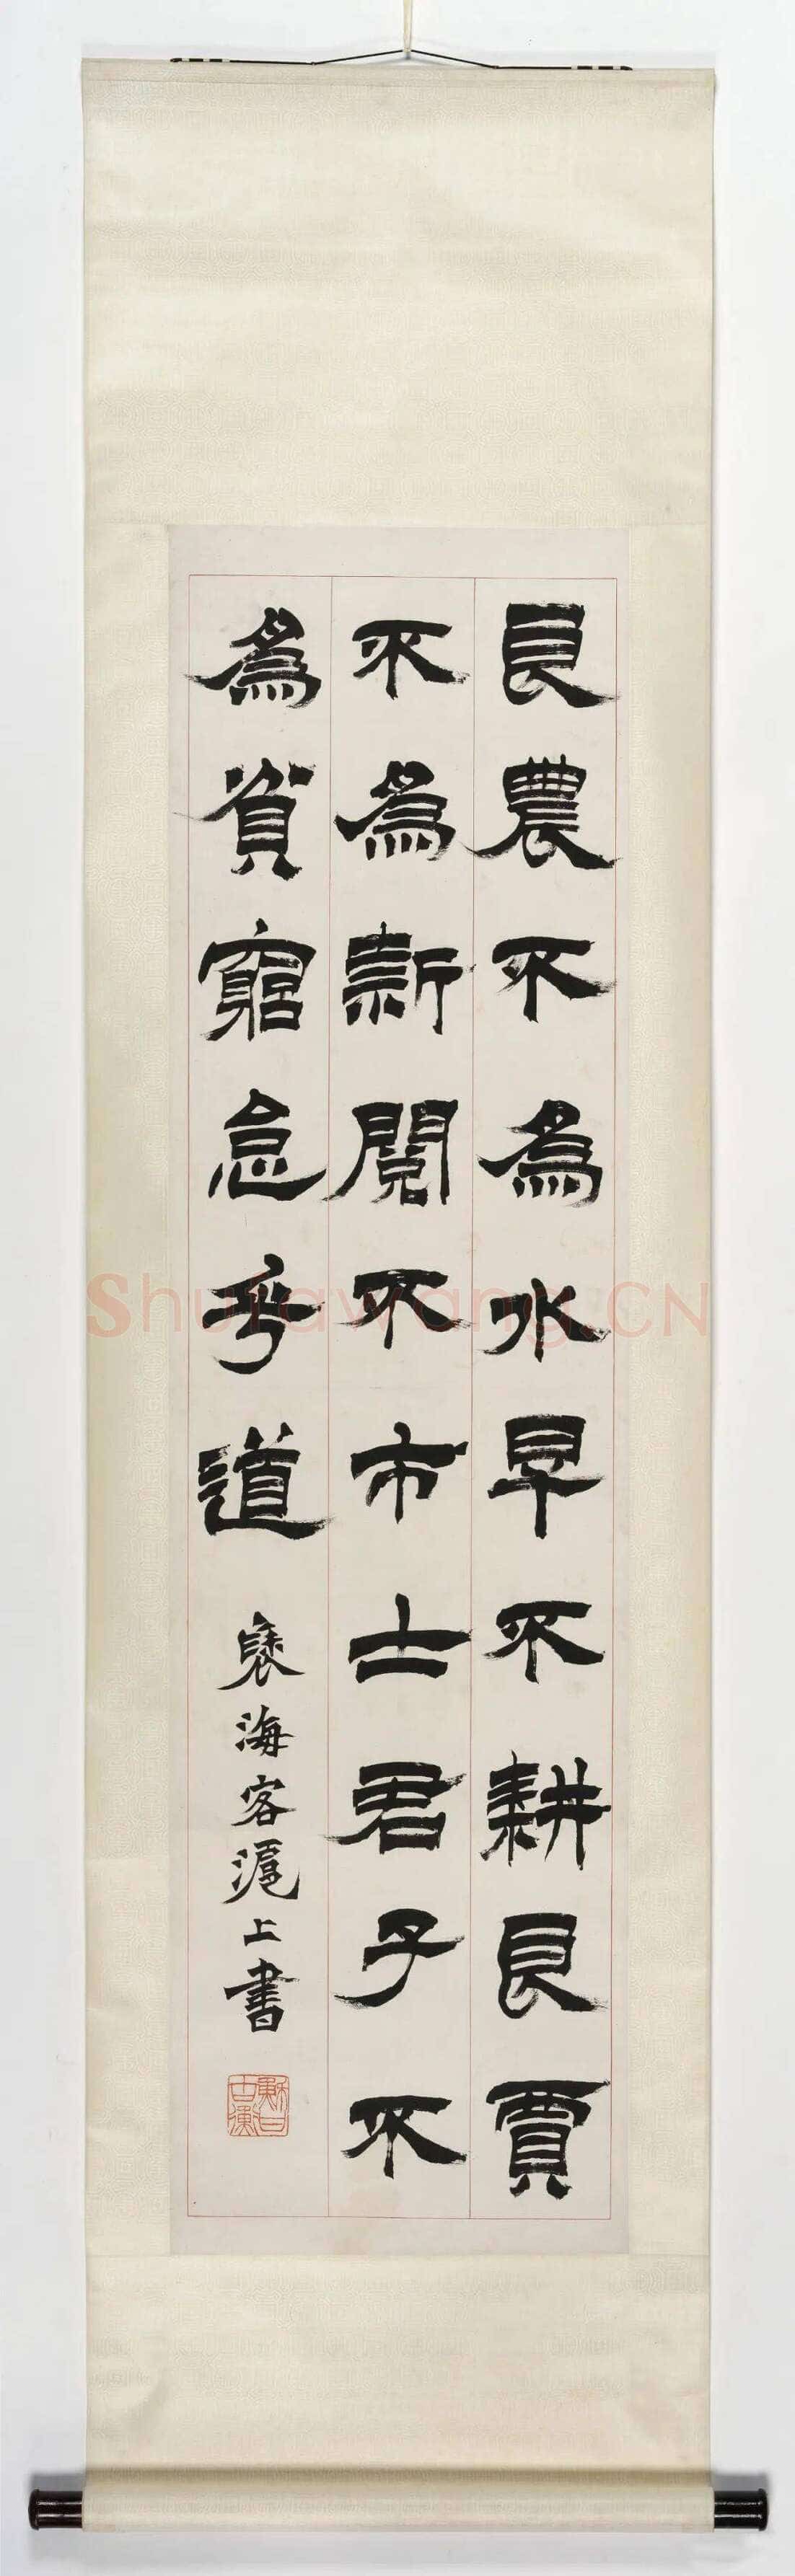 良農不為水旱不耕良賈
不為新閱不市士君子不
為貧窮怠乎道
褎海客滬上書
Shufawang.CN